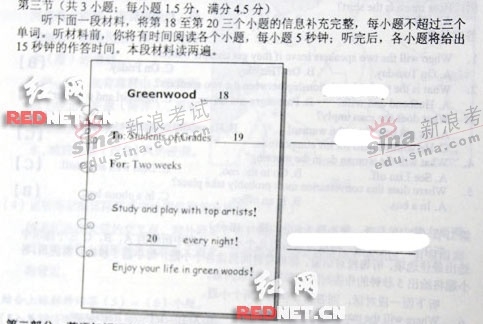 第三节（共3小题；每小题1.5分，满分4.5分）
听下面一段材料，将第18至第20三个小题的信息补充完整，每小题不超过三个
单词。听材料前，你将有时间阅读各个小题，每小题5秒钟；听完后，各小题将给出
15秒钟的作答时间。本段材料读两遍。
Greenwood 18
To: Students of Grades 19
For: Two weeks
Study and play with top artists!
20 every night!
Enjoy your life in green woods!
红网
REDNET.CN
sina 新浪考试
edu.sina.com.cn
sina 新浪考试
edu.sina.com.cn
红网
REDNET.CN